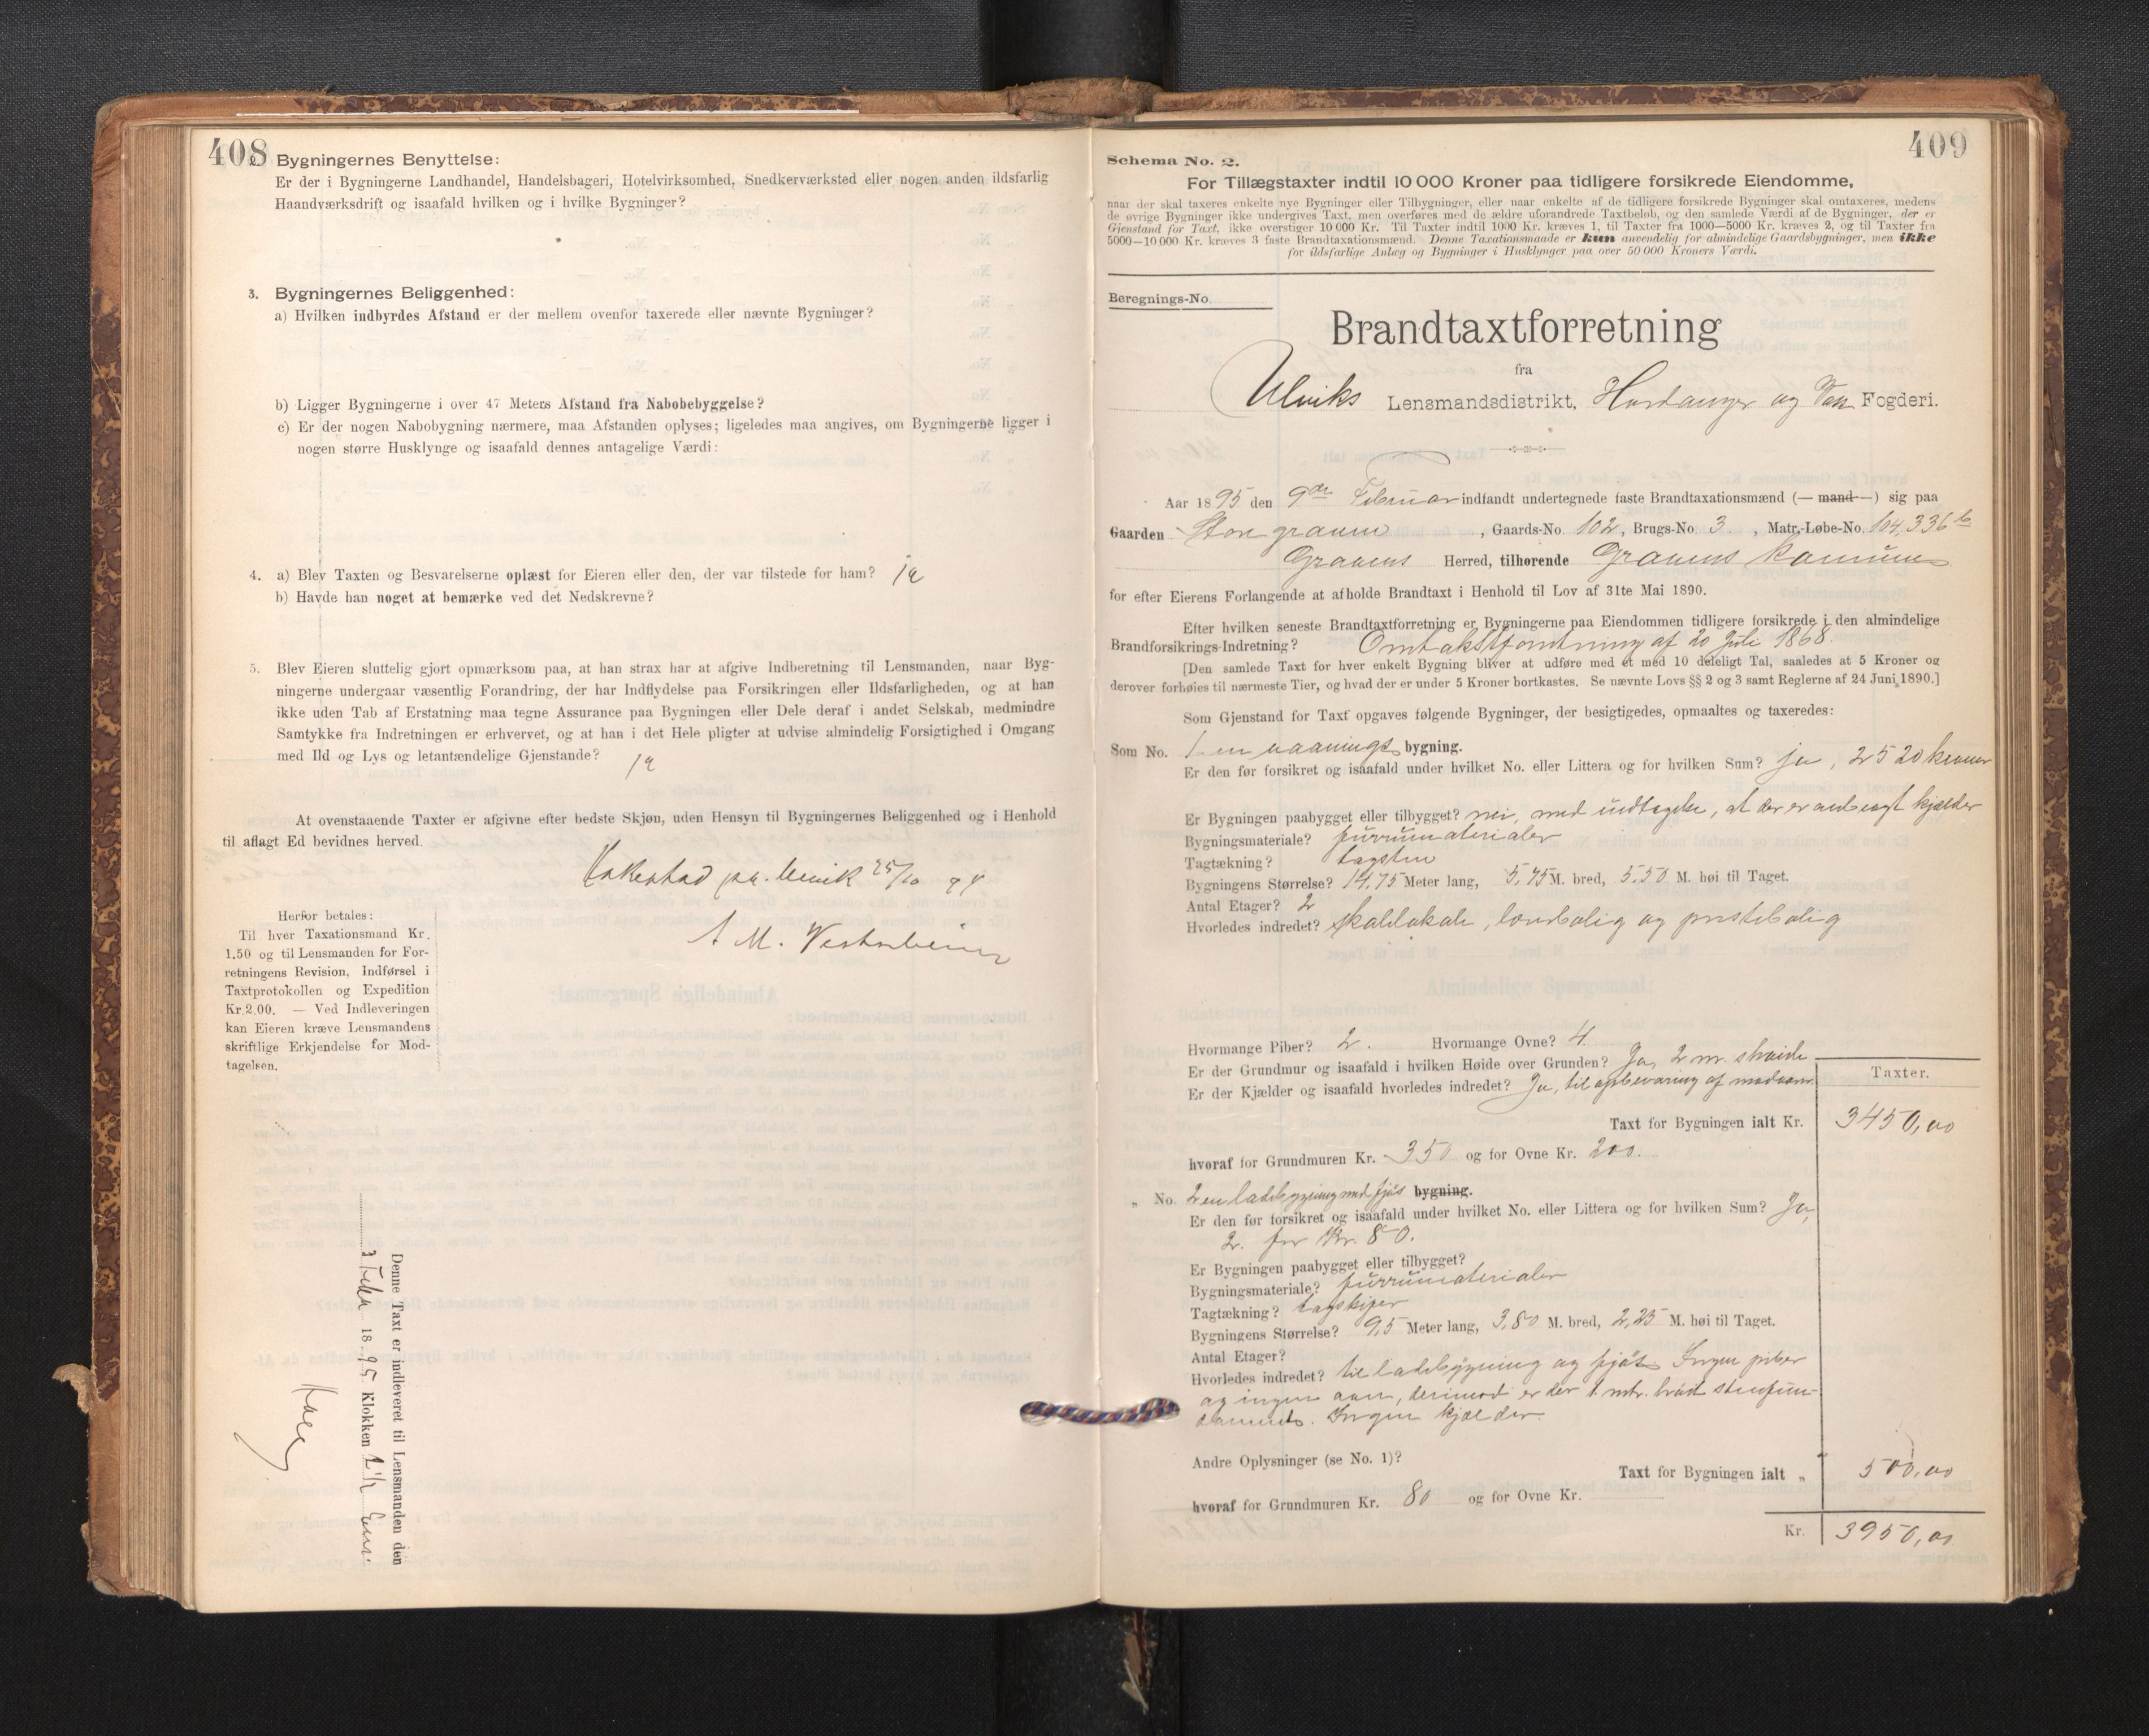 408
2. Bygningernes Benyttelse:
Er der i Bygningerne Landhandel, Handelsbageri, Hotelvirksomhed, Snedkerværksted eller nogen anden ildsfarlig
Haandværksdrift og isaafald hvilken og i hvilke Bygninger?
3. Bygningernes Beliggenhed:
a) Hvilken indbyrdes Afstand er der mellem ovenfor taxerede eller nævnte Bygninger?
b) Ligger Bygningerne i over 47 Meters Afstand fra Nabobebyggelse?
c) Er der nogen Nabobygning nærmere, maa Afstanden oplyses; ligeledes maa angives, om Bygningerne ligger i
nogen større Husklynge og isaafald dennes antagelige Værdi:
4. a) Blev Taxten og Besvarelserne oplæst for Eieren eller den, der var tilstede for ham? ja
b) Havde han noget at bemærke ved det Nedskrevne?
5. Blev Eieren sluttelig gjort opmærksom paa, at han strax har at afgive Indberetning til Lensmanden, naar Byg-
ningerne undergaar væsentlig Forandring, der har Indflydelse paa Forsikringen eller Ildsfarligheden, og at han
ikke uden Tab af Erstatning maa tegne Assurance paa Bygningen eller Dele deraf i andet Selskab, medmindre
Samtykke fra Indretningen er erhvervet, og at han i det Hele pligter at udvise almindelig Forsigtighed i Omgang
med Ild og Lys og letantændelige Gjenstande? ja
At ovenstaaende Taxter er afgivne efter bedste Skjøn, uden Hensyn til Bygningernes Beliggenhed og i Henhold
til aflagt Ed bevidnes herved.
Hakestad pr. Ulvik 25/10 94
A M. Vestrheim
Herfor betales:
Til hver Taxationsmand Kr.
1.50 og til Lensmanden for For-
retningens Revision, Indførsel i
Taxtprotokollen og Expedition
Kr. 2.00. — Ved Indleveringen
kan Eieren kræve Lensmandens
skriftlige Erkjendelse for Mod-
tagelsen.
Denne Taxt er indleveret til Lensmanden den
3 Febr 1895 Klokken
409
Schema No. 2.
For Tillægstaxter indtil 10 000 Kroner paa tidligere forsikrede Eiendomme,
naar der skal taxeres enkelte nye Bygninger eller Tilbygninger, eller naar enkelte af de tidligere forsikrede Bygninger skal omtaxeres, medens
de øvrige Bygninger ikke undergives Taxt, men overføres med de ældre uforandrede Taxtbeløb, og den samlede Værdi af de Bygninger, der er
Gjenstand for Taxt, ikke overstiger 10 000 Kr. Til Taxter indtil 1000 Kr. kræves 1, til Taxter fra 1000—5000 Kr. kræves 2, og til Taxter fra
5000—10 000 Kr. kræves 3 faste Brandtaxationsmænd. Denne Taxationsmaade er kun anvendelig for almindelige Gaardsbygninger, men ikke
for ildsfarlige Anlæg og Bygninger i Husklynger paa over 50 000 Kroners Værdi.
Beregnings-No.
Brandtaxtforretning
fra
Ulviks Lensmandsdistrikt, Hardanger og Voss Fogderi.
Aar 1895 den 9de Februar indfandt undertegnede faste Brandtaxationsmænd (— mand —) sig paa
Gaarden Store graven, Gaards-No. 102, Brugs-No. 3, Matr.-Løbe-No. 104, 336 b
Gravens Herred, tilhørende Gravens Komune
for efter Eierens Forlangende at afholde Brandtaxt i Henhold til Lov af 31te Mai 1890.
Efter hvilken seneste Brandtaxtforretning er Bygningerne paa Eiendommen tidligere forsikrede i den almindelige
Brandforsikrings-Indretning? Omtakstforretning af 20 Juli 1868.
[Den samlede Taxt for hver enkelt Bygning bliver at udføre med et med 10 deleligt Tal, saaledes at 5 Kroner og
derover forhøies til nærmeste Tier, og hvad der er under 5 Kroner bortkastes. Se nævnte Lovs §§ 2 og 3 samt Reglerne af 24 Juni 1890.]
Som Gjenstand for Taxt opgaves følgende Bygninger, der besigtigedes, opmaaltes og taxeredes:
Som No. 1 en vaanings bygning.
Er den før forsikret og isaafald under hvilket No. eller Littera og for hvilken Sum? ja, 2520 kroner
Er Bygningen paabygget eller tilbygget? nei, med undtagelse, at der er anbragt kjælder
Bygningsmateriale? furrumaterialer
Tagtækning? tagsten
Bygningens Størrelse? 14,75 Meter lang, 5,75 M. bred, 5,50 M. høi til Taget.
Antal Etager? 2
Hvorledes indredet? skolelokale, lærerbolig og prestebolig
Hvormange Piber? 2. Hvormange Ovne? 4
Er der Grundmur og isaafald i hvilken Høide over Grunden? Ja, 2 m. støide
Er der Kjælder og isaafald hvorledes indredet? Ja, til opbevaring af madvarer
Taxter.
Taxt for Bygningen ialt Kr. 3450,00
hvoraf for Grundmuren Kr. 350 og for Ovne Kr. 200.
„ No. 2 en ladebygning med fjøs bygning.
Er den før forsikret og isaafald under hvilket No. eller Littera og for hvilken Sum? Ja,
2. for Kr. 80.
Er Bygningen paabygget eller tilbygget?
Bygningsmateriale? furrumaterialer
Tagtækning? tagskifer
Bygningens Størrelse? 9,5 Meter lang, 3,80 M. bred, 2,25 M. høi til Taget.
Antal Etager?
Hvorledes indredet? til ladebygning og fjøs Ingen piber
og ingen ovn, derimod er der 1 mtr. stenfun-
daments. Ingen kjælder.
Andre Oplysninger (se No. 1)?
Taxt for Bygningen ialt „ 500,00
hvoraf for Grundmuren Kr. 80 og for Ovne Kr.
Kr. 3950,00